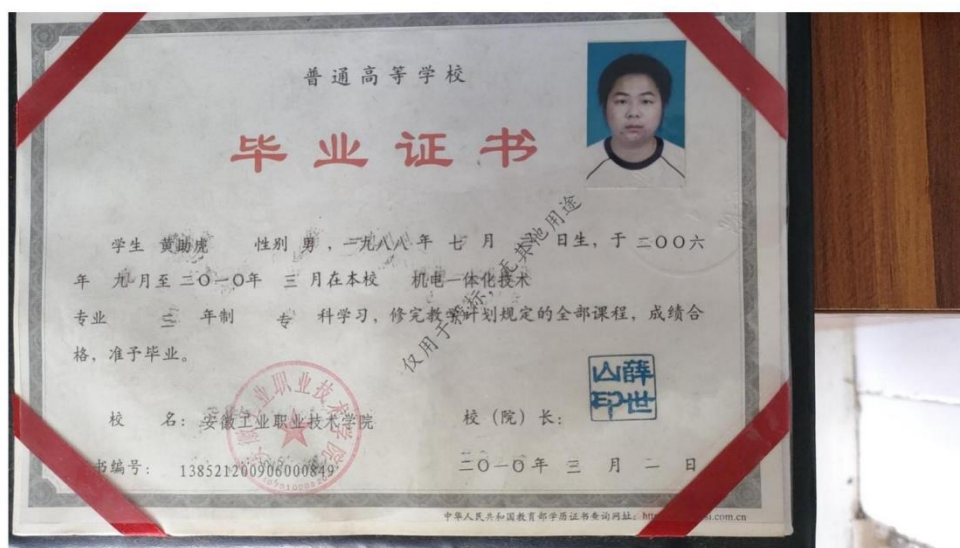 普通高等学校
毕业证书
学生 黄助虎 性别 男，一九八八年 七 月 日生，于 二〇〇六
年 九月至 二〇一〇年 三 月在本校 机电一体化技术
专业 三 年制 专 科学习，修完教学计划规定的全部课程，成绩合
格，准予毕业。
仅用于投标，无其他用途
校 名：安徽工业职业技术学院 校（院）长：
薛世
山印
书编号： 138521200906000849 二〇一〇年 三 月 一 日
安徽工业职业技术学院
中华人民共和国教育部学历证书查询网址：